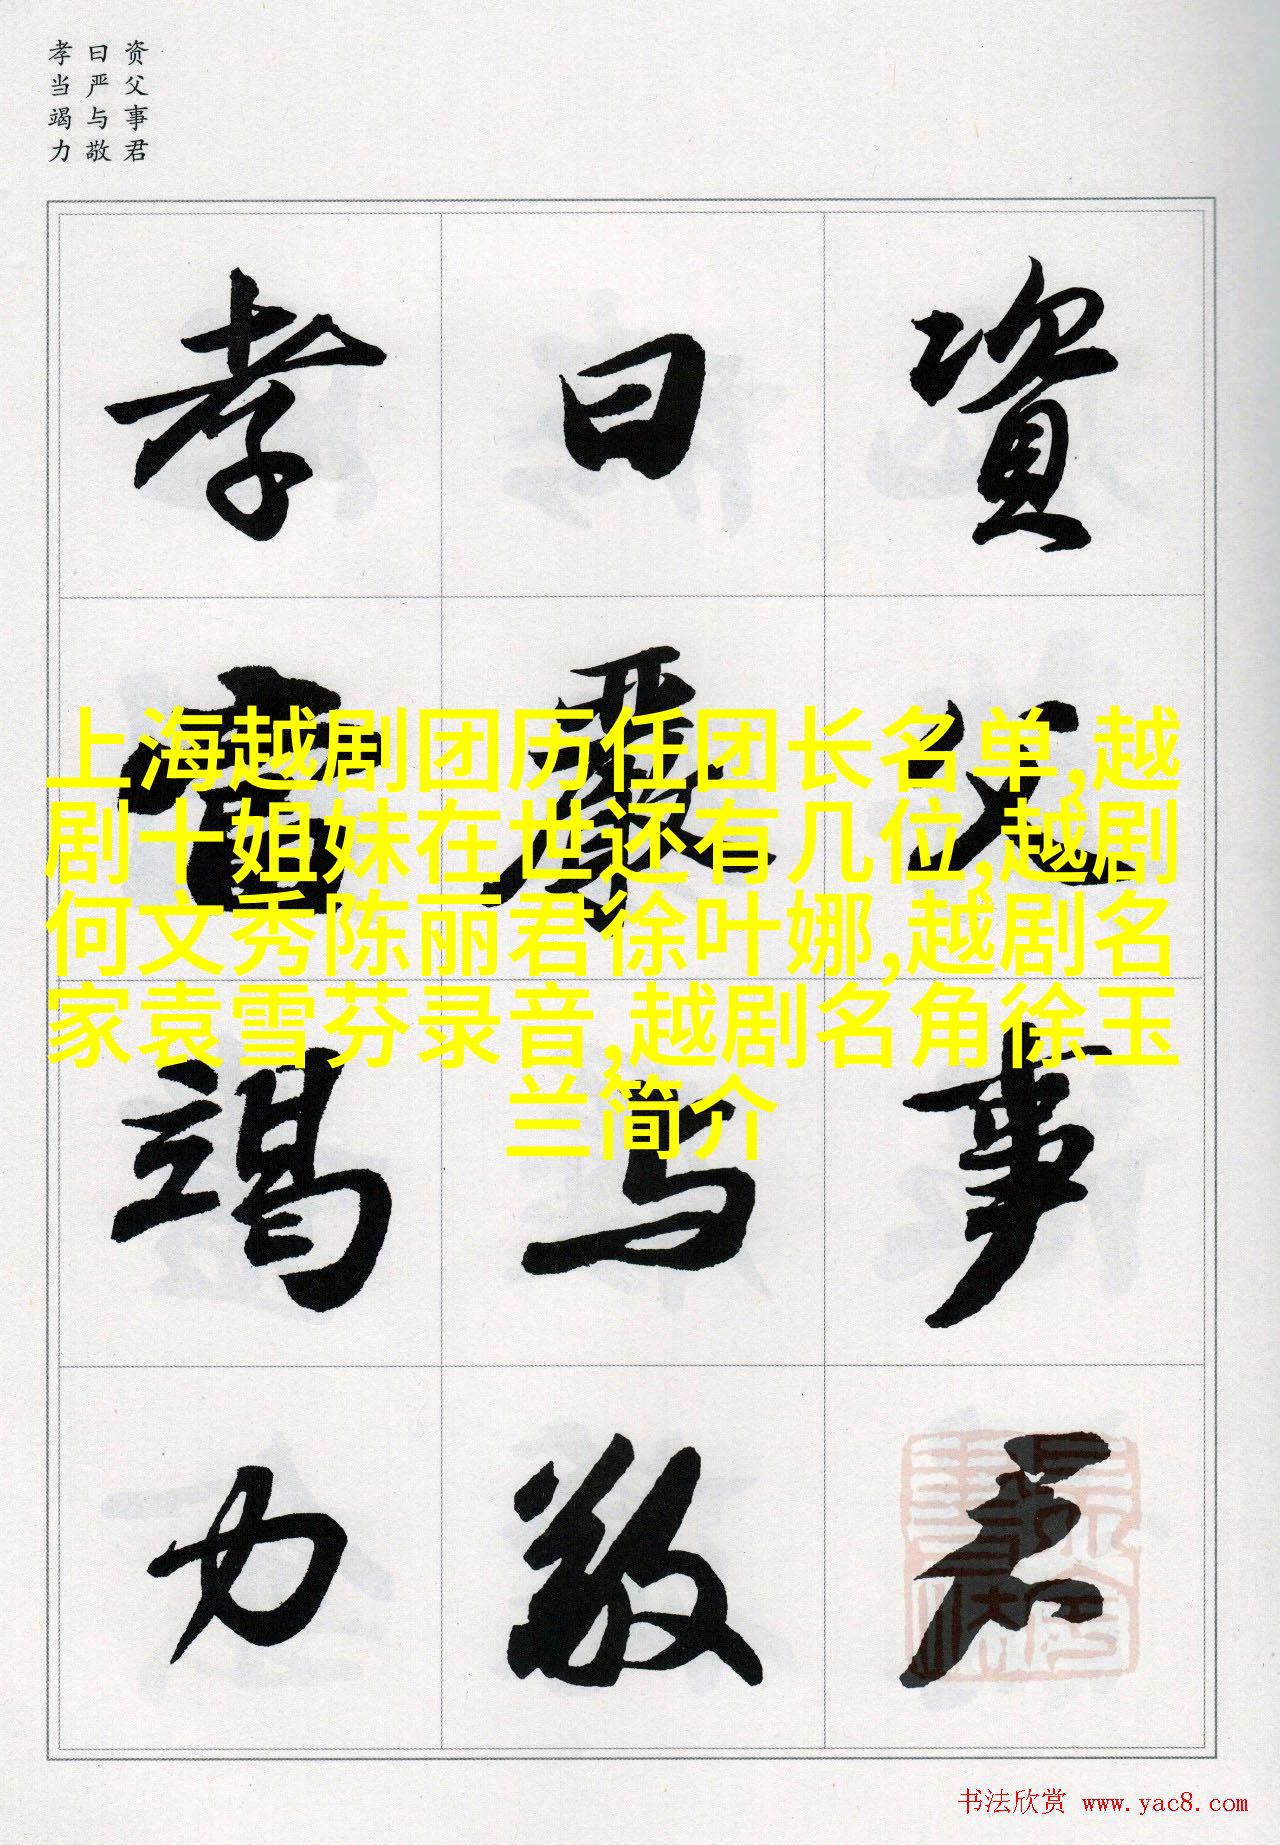 资父事君
曰严与敬
孝当竭力
資父事君
曰嚴与敬
孝當竭力
上海越剧团历任团长名单,越
剧十姐妹在世还有几位,越剧
何文秀陈丽君徐叶娜,越剧名
家袁雪芬录音,越剧名角徐玉
兰简介
书法欣赏 www.yac8.com